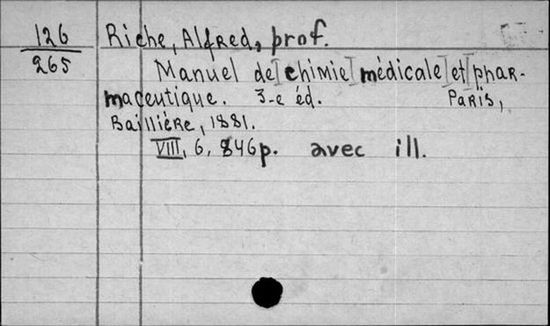 126
265
Riche, Alfred, prof.
Manuel de chimie médicale et phar-
maceutique. 3-e éd. Paris,
Baillière, 1881.
VIII, 6, 846 p. avec ill.